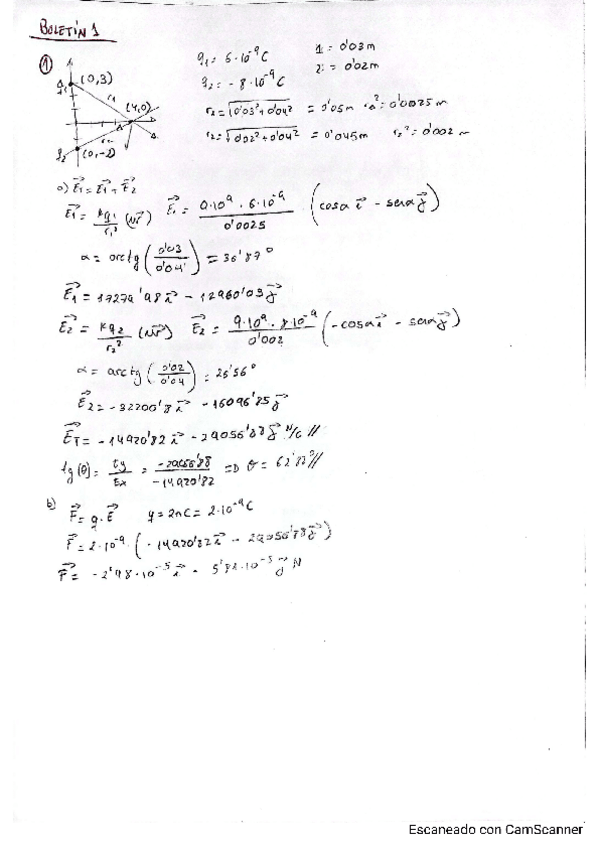 BOLETÍN 1
① (0,3) q₁ r₁ (4,0) r₂ q₂ (0,-2)
q₁ = 6·10⁻⁹ C 1 = 0'03 m
q₂ = -8·10⁻⁹ C 2 = 0'02 m
r₂ = √(0'03² + 0'04²) = 0'05 m r₁² = 0'0025 m
r₂ = √(0'02² + 0'04²) = 0'045 m r₂² = 0'002 m
E₁ = kq₁/r₁² (Ur) E₁ = 9·10⁹ · 6·10⁻⁹ / 0'0025 (cosα i - senα j)
α = arctg (0'03/0'04) = 36'87°
E₁ = 17279'98 i - 12960'03 j
E₂ = kq₂/r₂² (Ur) E₂ = 9·10⁹ · 8·10⁻⁹ / 0'002 (-cosα i - senα j)
α = arctg (0'02/0'04) = 26'56°
E₂ = -32200'8 i - 16096'85 j
ET = -14920'82 i - 29056'88 j N/C //
tg(θ) = Ey/Ex = -29056'88 / -14920'82 => θ = 62'82° //
b) F = q·E q = 2nC = 2·10⁻⁹ C
F = 2·10⁻⁹ · (-14920'82 i - 29056'88 j)
F = -2'98·10⁻⁵ i - 5'82·10⁻⁵ j N
Escaneado con CamScanner